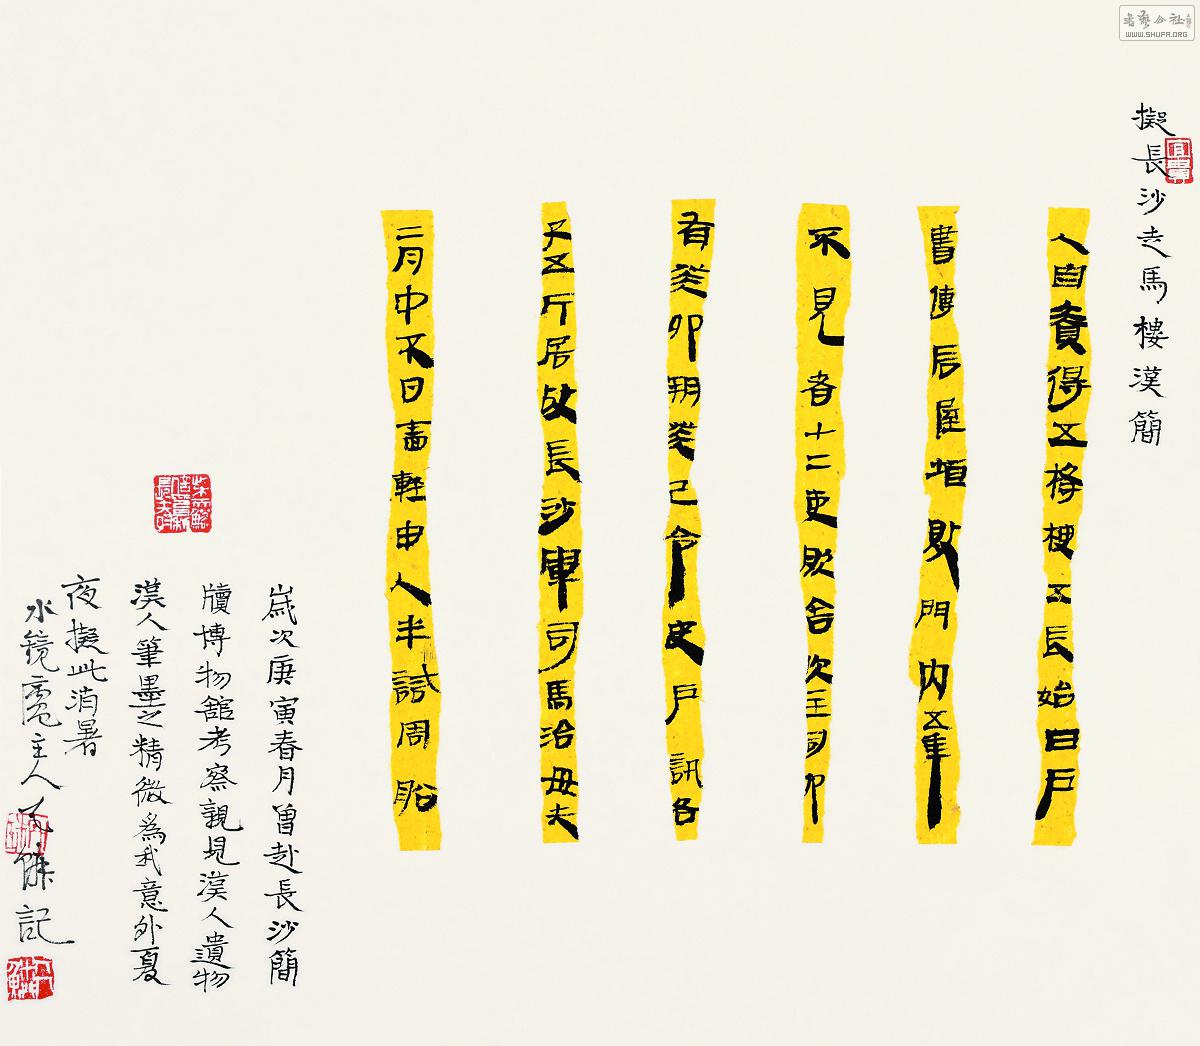 擬長沙走馬樓漢簡
人自責得五格梗五長始日戶
書傳后屋垣敗門內五年
不見者十二吏欧舍次王同卯
有癸卯朔癸已令史戶訊各
五斤居故長沙軍司馬治毋夫
二月中不日畫輕申人半試周船
歲次庚寅春月曾赴長沙簡
牘博物館考察親見漢人遺物
漢人筆墨之精微為我意外夏
夜擬此消暑
水鏡庵主人記
書藝公社
WWW.SHUFA.ORG